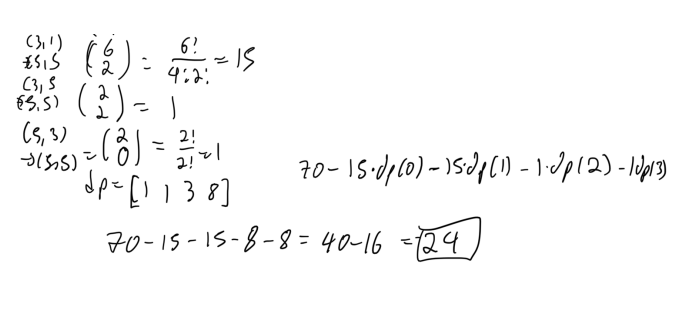 (3,1)
→5,5 (6 2) = 6!/4!2! = 15
(3,5
→(5,5) (2 2) = 1
(5,3)
→(5,5) = (2 0) = 2!/2! = 1
dp = [1 1 3 8]
70 - 15·dp(0) - 15·dp(1) - 1·dp(2) - 1dp(3)
70 - 15 - 15 - 8 - 8 = 40 - 16 = 24